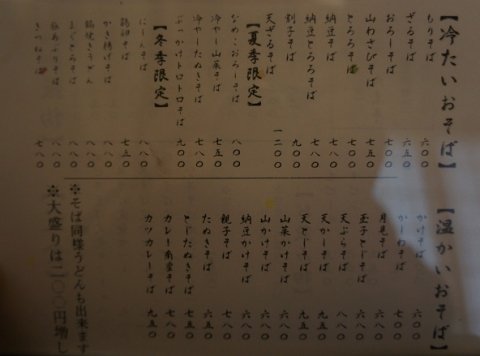 【冷たいおそば】
もりそば 六〇〇
ざるそば 六五〇
おろしそば 七〇〇
山わさびそば 七五〇
とろろそば
納豆そば 七八〇
納豆とろろそば
割子そば 九〇〇
天ざるそば 一二〇〇
【夏季限定】
なめこおろしそば 八〇〇
冷やし山菜そば 七五〇
冷やしたぬきそば 七八〇
ぶっかけトロトロそば 九〇〇
【冬季限定】
にしんそば 八八〇
そば 七五〇
かき揚げそば 七八〇
鍋焼きうどん 八八〇
まぐとろそば 八八〇
八八〇
きつねそば 七八〇
【温かいおそば】
かけそば 六〇〇
かしわそば
月見そば
玉子とじそば
天ぷらそば
天かしそば
天とじそば
山菜かけそば
山かけそば
納豆かけそば
親子そば
たぬきそば 六五〇
とじたぬきそば 七五〇
カレー南蛮そば 七八〇
カツカレーそば 九五〇
※そば同様うどんも出来ます
※大盛りは二〇〇円増し